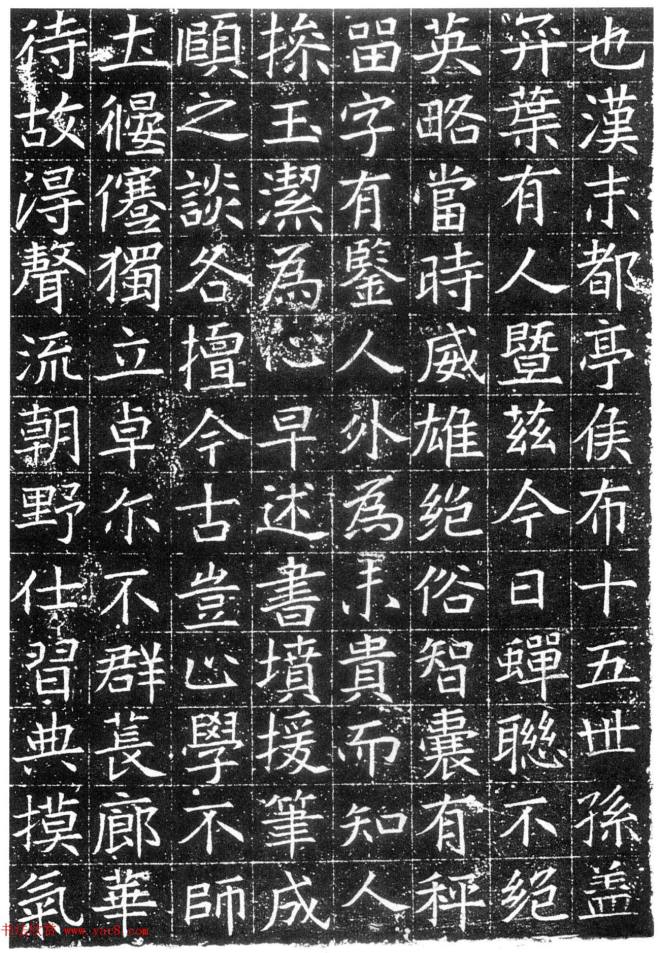 也漢末都亭侯布十五世孫盖
弈葉有人暨茲今日蟬聯不絕
英略當時威雄絕俗智囊有秤
留字有鑒人外為未貴而知人
操玉潔為心早述書墳援筆成
頤之談各擅今古豈止學不師
士偃蹇獨立卓尔不群萇廊華
待故得聲流朝野仕習典摸氣
书法欣赏 www.yac8.com